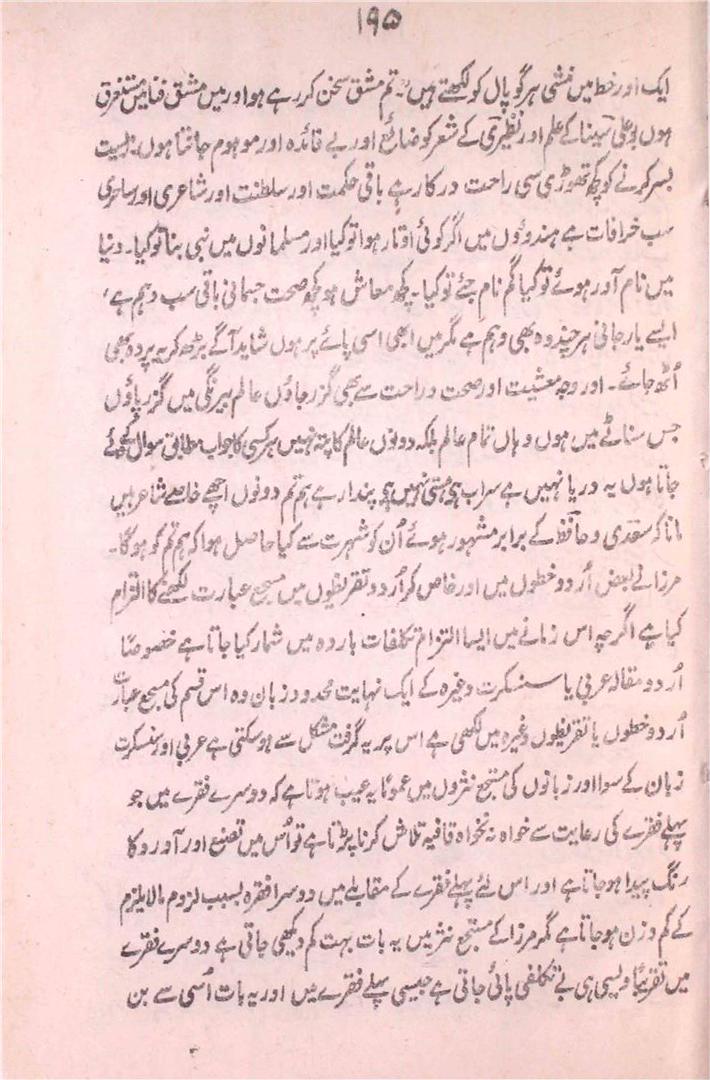 ۱۹۵
ایک اور خط میں منشی ہرگوپال کو لکھتے ہیں "۔ تم مشق سخن کر رہے ہو اور میں مشق فنا میں مستغرق
ہوں بو علی سینا کے علم اور نظیری کے شعر کو ضائع اور بے فائدہ اور موہوم جانتا ہوں۔ زیست
بسر کرنے کو کچھ تھوڑی سی راحت درکار ہے باقی حکمت اور سلطنت اور شاعری اور ساحری
سب خرافات ہے ہندوؤں میں اگر کوئی اوتار ہوا تو کیا اور مسلمانوں میں نبی بنا تو کیا۔ دنیا
میں نام آور ہوئے تو کیا گم نام جئے تو کیا۔ کچھ معاش ہو کچھ صحت جسمانی باقی سب وہم ہے،
ایسے یار جانی ہر چند وہ بھی وہم ہے مگر میں ابھی اسی پائے پر ہوں شاید آگے بڑھ کر یہ پردہ بھی
اُٹھ جائے۔ اور وجہ معیشت اور صحت و راحت سے بھی گزر جاؤں عالم بیرنگی میں گزر پاؤں
جس سناٹے میں ہوں وہاں تمام عالم بلکہ دونوں عالم کا پتہ نہیں ہر کسی کا جواب مطابق سوال کے دیئے
جاتا ہوں یہ دریا نہیں ہے سراب ہے ہستی نہیں ہے پندار ہے ہم تم دونوں اچھے خاصے شاعر ہیں
مانا کہ سعدی و حافظ کے برابر مشہور ہوئے اُن کو شہرت سے کیا حاصل ہوا کہ ہم تم کو ہوگا۔
مرزا نے بعض اُردو خطوں میں اور خاص کر اُردو تقریظوں میں مسجع عبارت لکھنے کا التزام
کیا ہے اگرچہ اس زمانے میں ایسا التزام تکلفات باردہ میں شمار کیا جاتا ہے خصوصًا
اُردو مقابلہ عربی یا سنسکرت وغیرہ کے ایک نہایت محدود زبان وہ اس قسم کی مسجع عبارت
اُردو خطوں یا تقریظوں وغیرہ میں لکھی ہے اس پر یہ گرفت مشکل سے ہو سکتی ہے عربی اور سنسکرت
زبان کے سوا اور زبانوں کی مسجع نثروں میں عمومًا یہ عیب ہوتا ہے کہ دوسرے فقرے میں جو
پہلے فقرے کی رعایت سے خواہ نخواہ قافیہ تلاش کرنا پڑتا ہے تو اُس میں تصنع اور آورد کا
رنگ پیدا ہو جاتا ہے اور اس لئے پہلے فقرے کے مقابلے میں دوسرا فقرہ بسبب لزوم مالایلزم
کے کم وزن ہو جاتا ہے مگر مرزا کے مسجع نثر میں یہ بات بہت کم دیکھی جاتی ہے دوسرے فقرے
میں تقریبًا ویسی ہی بے تکلفی پائی جاتی ہے جیسی پہلے فقرے میں اور یہ بات اُسی سے بن